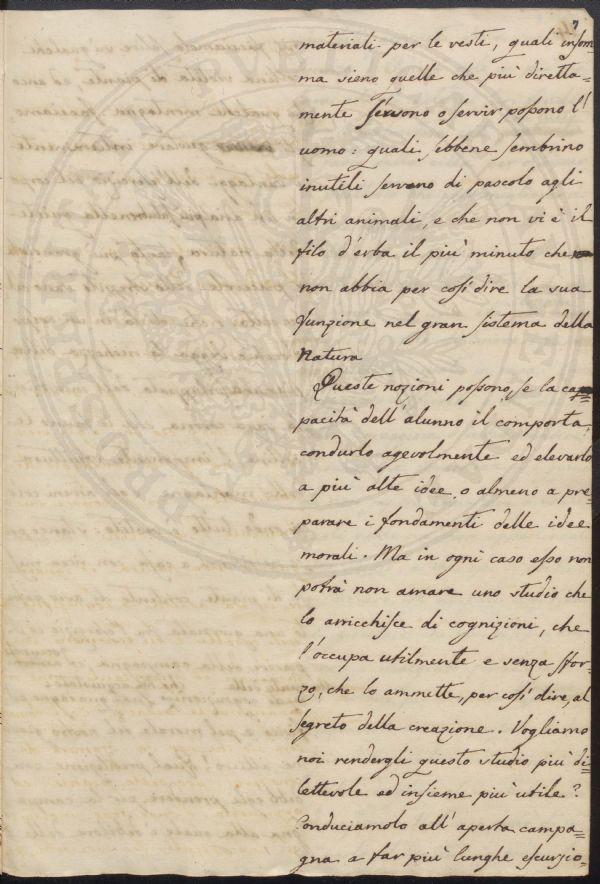 7
materiali per le vesti, quali insom=
ma sieno quelle che più diretta=
mente servono o servir possono l'
uomo: quali sebbene sembrino
inutili servono di pascolo agli
altri animali, e che non vi è il
filo d'erba il più minuto che
non abbia per così dire la sua
funzione nel gran sistema della
Natura
Queste nozioni possono, se la ca=
pacità dell'alunno il comporta,
condurlo agevolmente ed elevarlo
a più alte idee, o almeno a pre=
parare i fondamenti delle idee
morali. Ma in ogni caso esso non
potrà non amare uno studio che
lo arricchisce di cognizioni, che
l'occupa utilmente e senza sfor=
zo, che lo ammette, per così dire, al
segreto della creazione. Vogliamo
noi rendergli questo studio più di=
lettevole ed insieme più utile?
Conduciamolo all'aperta campa=
gna a far più lunghe escursio=